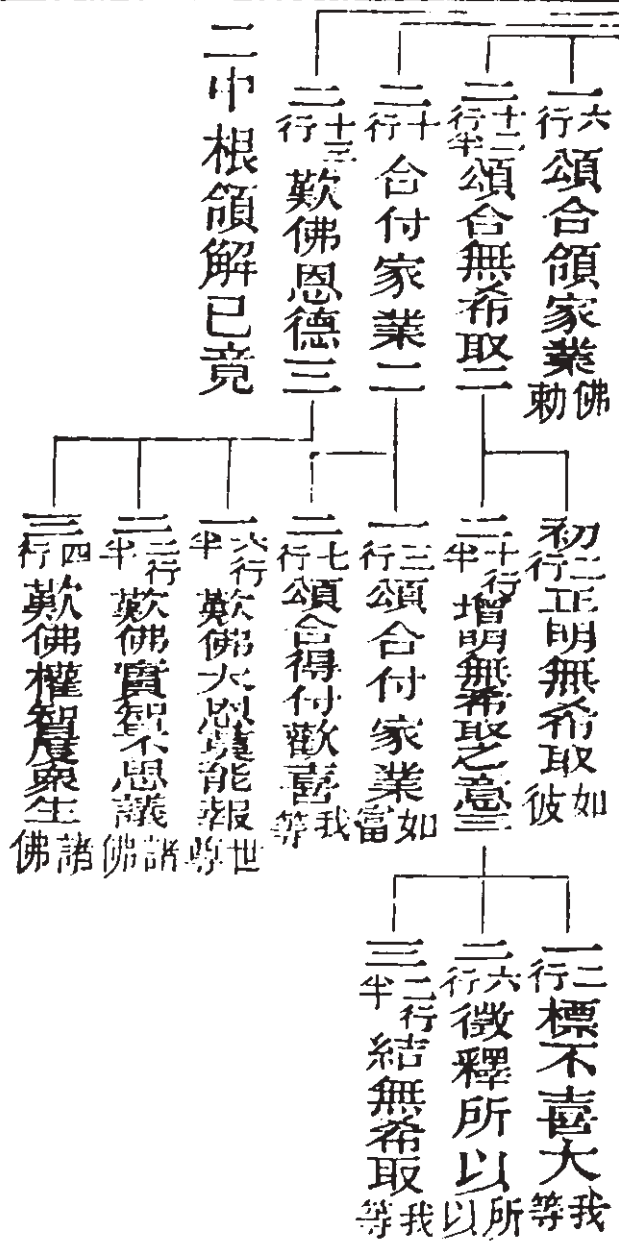 一六行頌合領家業佛勅
二十二行半頌合無希取二
二十行合付家業二
二十三行歎佛恩德三
二中根領解已竟
初二行正明無希取如彼
二十行半增明無希取之意三
一三行頌合付家業如富
二七行頌合得付歡喜我等
一六行半歎佛大恩莫能報世尊
二二行半歎佛實智不思議諸佛
三四行歎佛權智度衆生諸佛
一二行標不喜大我等
二六行徵釋所以所以
三二行半結無希取我等